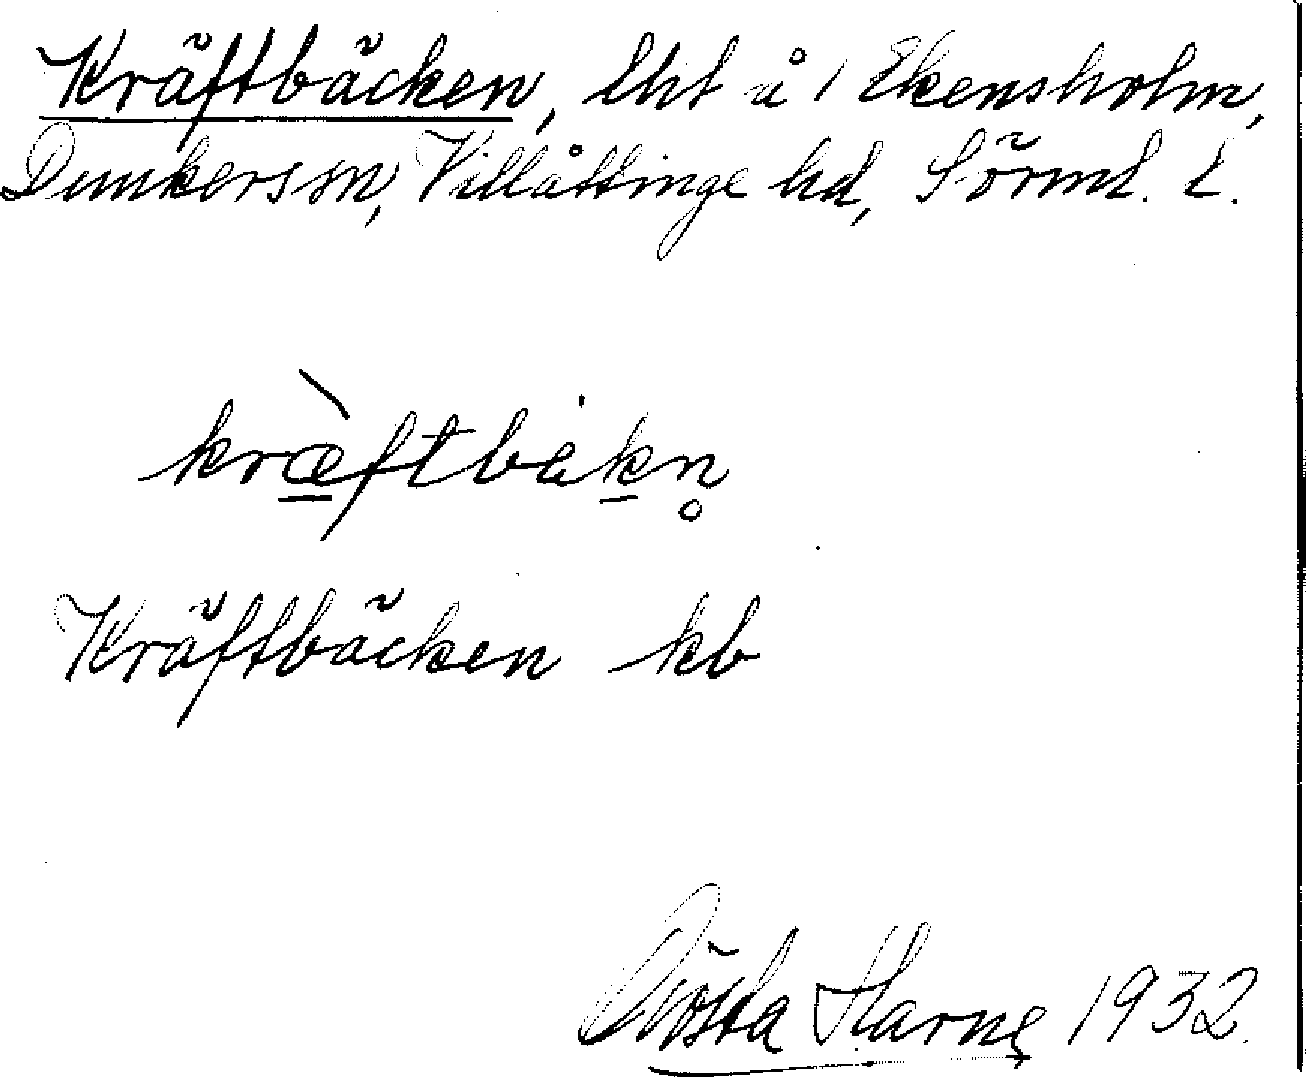 Kräftbäcken, lht å / Ekensholm,
Dunkers sn, Villåttinge hd, Sörml. l.
kræ̀ftbäkn̥
Kräftbäcken kb
Gösta Harne 1932.